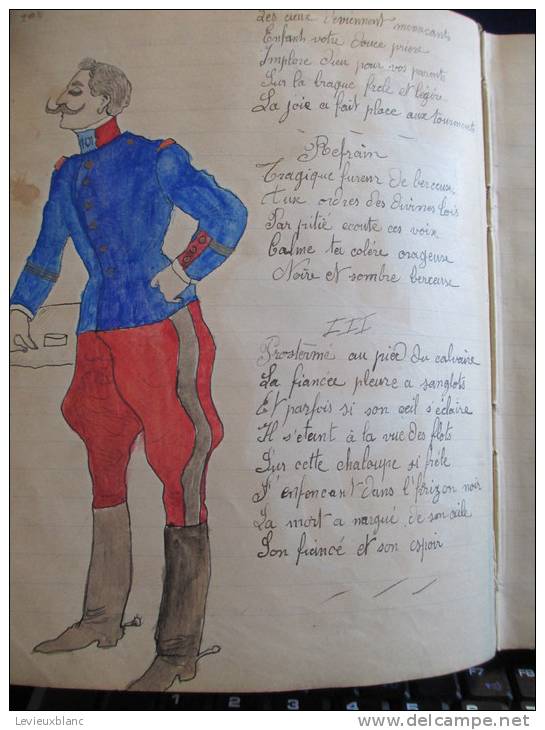 205
Les cieux deviennent menaçants
Enfants votre douce prière
Implore dieu pour vos parents
Sur la braque frele et légère
La joie a fait place aux tourments
Refrain
Tragique fureur de berceuse
Aux ordres des divines lois
Par pitié ecoute ces voix
Calme ta colère orageuse
Noire et sombre berceuse
III
Prosterné au pied du calvaire
La fiancée pleure a sanglots
Et parfois si son œil s'éclaire
Il s'eteint à la vue des flots
Sur cette chaloupe si frêle
S'enfoncant dans l'horizon noir
La mort a nargué de son aile
Son fiancé et son espoir
F7
F8
1
2
3
4
5
6
7
Levieuxblanc
www.delcampe.net